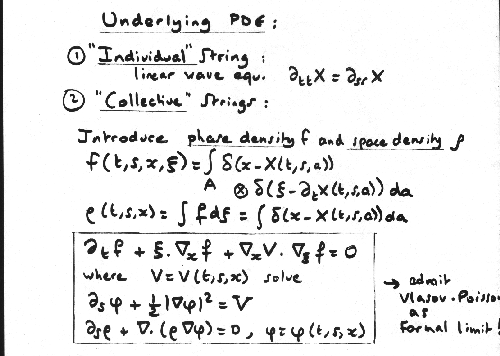 Underlying PDE:
① "Individual" String:
linear wave equ. ∂ttX = ∂ssX
② "Collective" Strings:
Introduce phase density f and space density ρ
f(t,s,x,ξ) = ∫ δ(x-X(t,s,a))
A ⊗ δ(ξ-∂tX(t,s,a)) da
ρ(t,s,x) = ∫ f dξ = ∫ δ(x-X(t,s,a)) da
∂tf + ξ.∇xf + ∇xV.∇ξf = 0
where V=V(t,s,x) solve
∂sφ + ½|∇φ|² = V
∂sρ + ∇.(ρ∇φ) = 0, φ=φ(t,s,x)
→ admit
Vlasov-Poisson
as
formal limit!